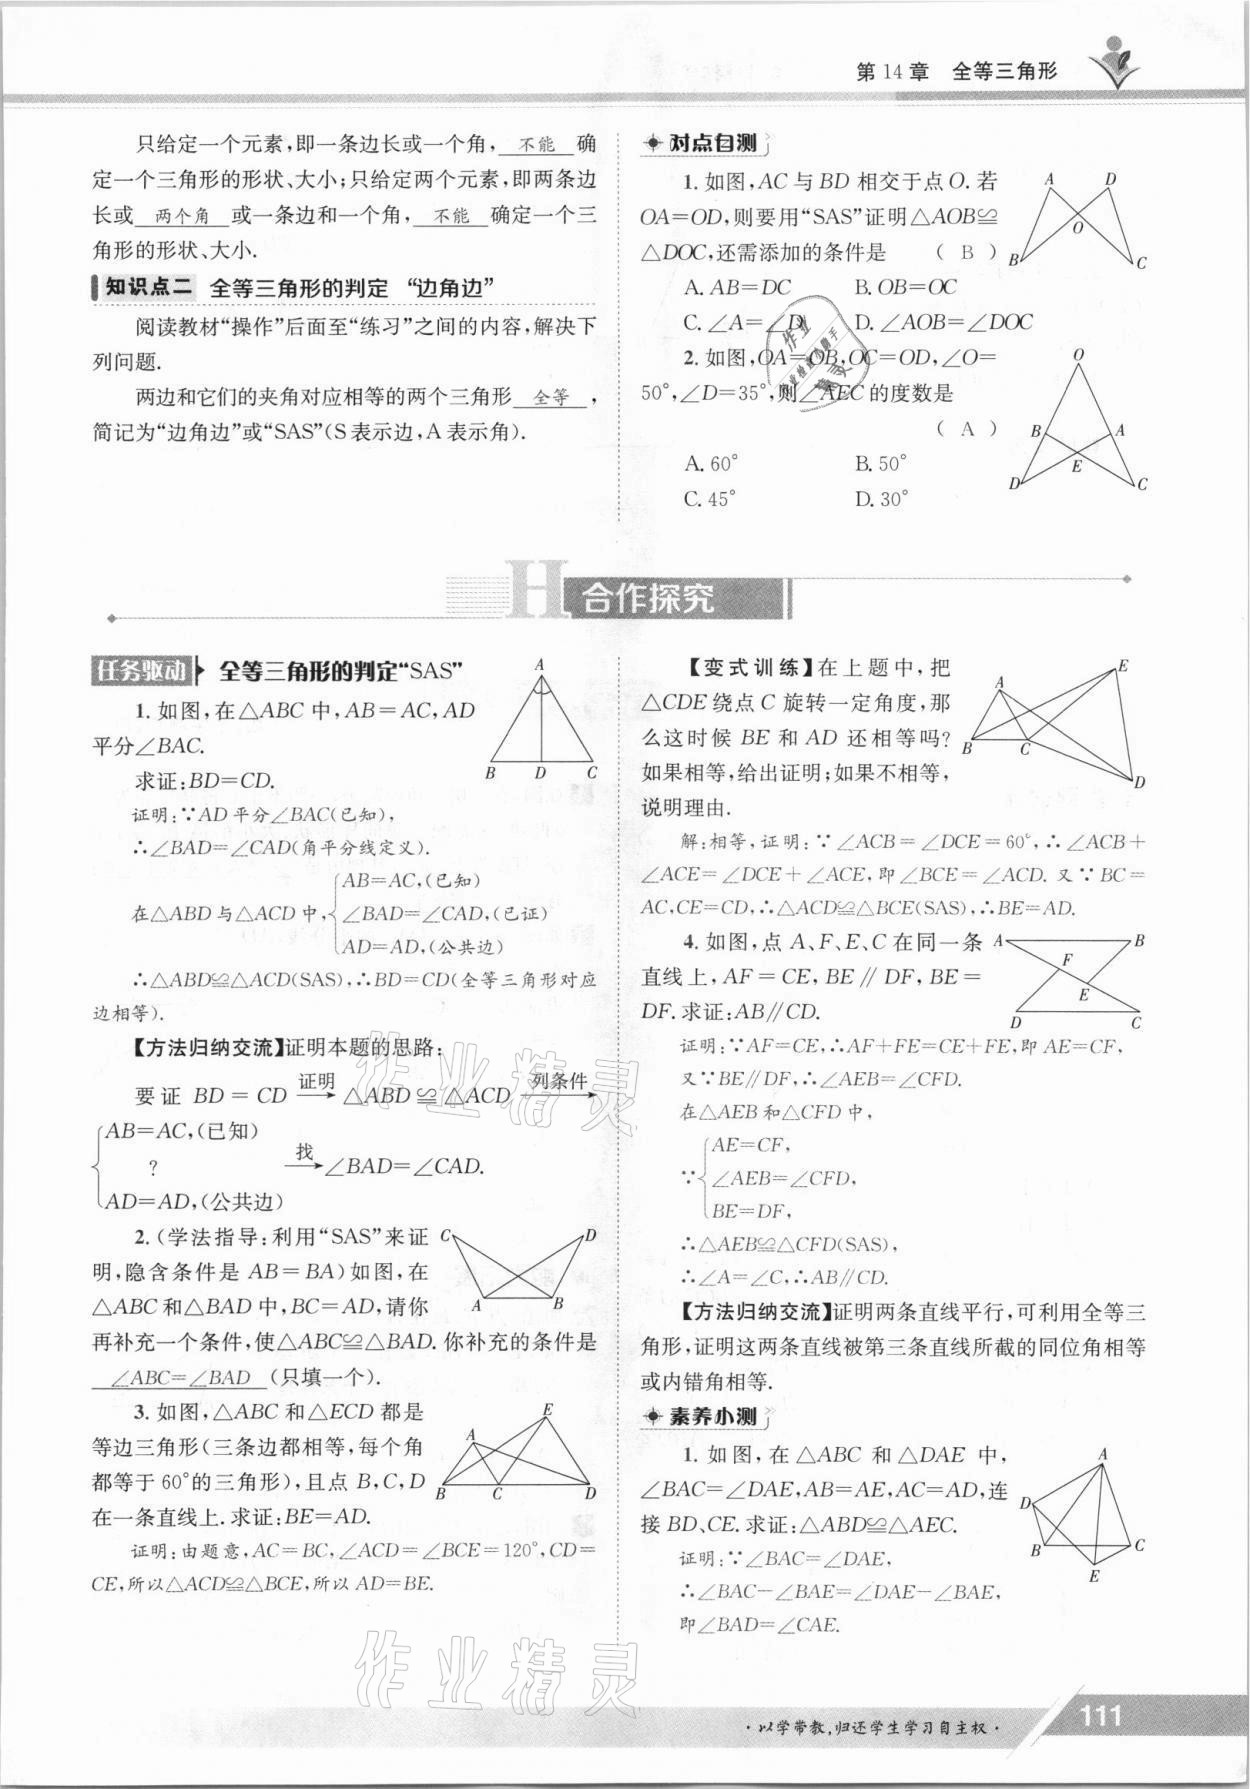 第14章 全等三角形
只给定一个元素,即一条边长或一个角, 不能 确
定一个三角形的形状、大小;只给定两个元素,即两条边
长或 两个角 或一条边和一个角, 不能 确定一个三
角形的形状、大小.
知识点二 全等三角形的判定 “边角边”
阅读教材“操作”后面至“练习”之间的内容,解决下
列问题.
两边和它们的夹角对应相等的两个三角形 全等 ,
简记为“边角边”或“SAS”(S表示边,A表示角).
对点自测
1.如图,AC与BD相交于点O.若
OA=OD,则要用“SAS”证明△AOB≌
△DOC,还需添加的条件是 ( B )
A.AB=DC B.OB=OC
C.∠A=∠D D.∠AOB=∠DOC
A D
O
B C
2.如图,OA=OB,OC=OD,∠O=
50°,∠D=35°,则∠AEC的度数是
( A )
A.60° B.50°
C.45° D.30°
O
B A
E
D C
H 合作探究
任务驱动 全等三角形的判定“SAS”
1.如图,在△ABC中,AB=AC,AD
平分∠BAC.
求证:BD=CD.
A
B D C
证明:∵AD平分∠BAC(已知),
∴∠BAD=∠CAD(角平分线定义).
AB=AC,(已知)
在△ABD与△ACD中, ∠BAD=∠CAD,(已证)
AD=AD,(公共边)
∴△ABD≌△ACD(SAS),∴BD=CD(全等三角形对应
边相等).
【方法归纳交流】证明本题的思路:
要证 BD=CD 证明→ △ABD≌△ACD 列条件→
AB=AC,(已知)
? 找→ ∠BAD=∠CAD.
AD=AD,(公共边)
2.(学法指导:利用“SAS”来证
明,隐含条件是AB=BA)如图,在
△ABC和△BAD中,BC=AD,请你
再补充一个条件,使△ABC≌△BAD.你补充的条件是
∠ABC=∠BAD (只填一个).
C D
A B
3.如图,△ABC和△ECD都是
等边三角形(三条边都相等,每个角
都等于60°的三角形),且点B,C,D
在一条直线上.求证:BE=AD.
E
A
B C D
证明:由题意,AC=BC,∠ACD=∠BCE=120°,CD=
CE,所以△ACD≌△BCE,所以AD=BE.
【变式训练】在上题中,把
△CDE绕点C旋转一定角度,那
么这时候BE和AD还相等吗?
如果相等,给出证明;如果不相等,
说明理由.
E
A
B C
D
解:相等,证明:∵∠ACB=∠DCE=60°,∴∠ACB+
∠ACE=∠DCE+∠ACE,即∠BCE=∠ACD.又∵BC=
AC,CE=CD,∴△ACD≌△BCE(SAS),∴BE=AD.
4.如图,点A、F、E、C在同一条
直线上,AF=CE,BE∥DF,BE=
DF.求证:AB∥CD.
A B
F
E
D C
证明:∵AF=CE,∴AF+FE=CE+FE,即AE=CF,
又∵BE∥DF,∴∠AEB=∠CFD.
在△AEB和△CFD中,
AE=CF,
∵ ∠AEB=∠CFD,
BE=DF,
∴△AEB≌△CFD(SAS),
∴∠A=∠C,∴AB∥CD.
【方法归纳交流】证明两条直线平行,可利用全等三
角形,证明这两条直线被第三条直线所截的同位角相等
或内错角相等.
素养小测
1.如图,在△ABC和△DAE中,
∠BAC=∠DAE,AB=AE,AC=AD,连
接BD、CE.求证:△ABD≌△AEC.
A
D
B C
E
证明:∵∠BAC=∠DAE,
∴∠BAC−∠BAE=∠DAE−∠BAE,
即∠BAD=∠CAE.
作业精灵
作业精灵
·以学带教,归还学生学习自主权·
111